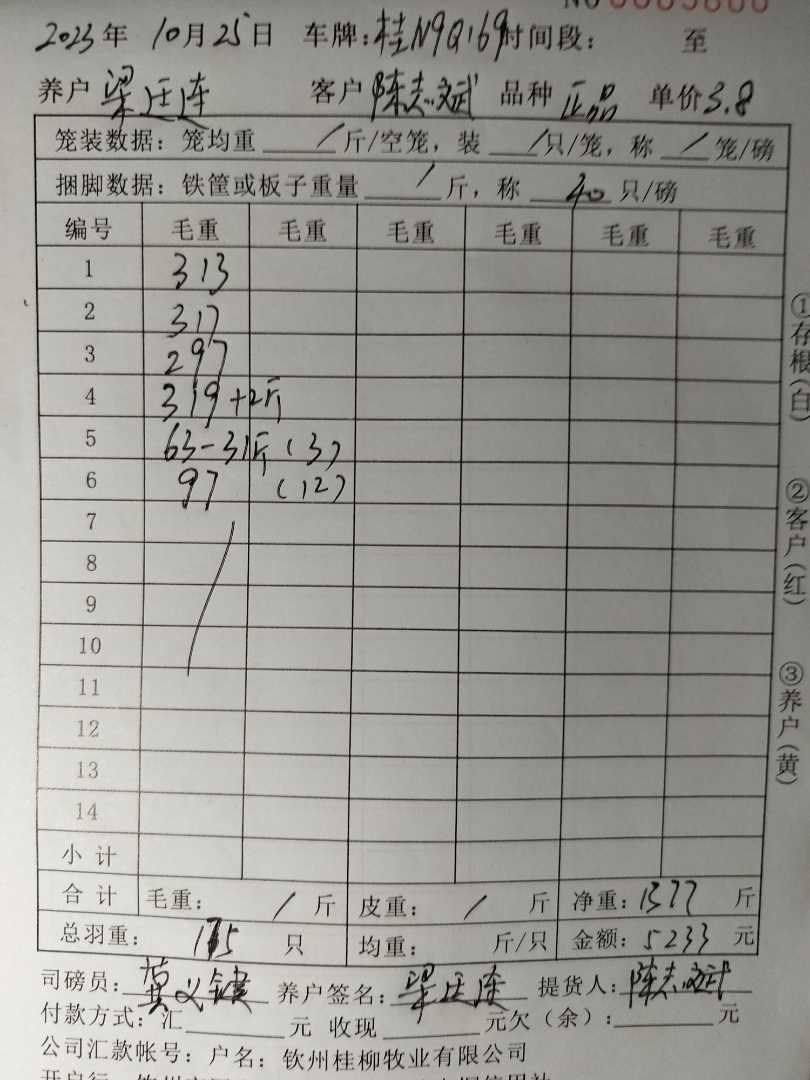 2023年 10月25日 车牌：桂N9Q169 时间段： 至
养户 梁廷连 客户 陈志斌 品种 正品 单价3.8
笼装数据：笼均重 / 斤/空笼，装 / 只/笼，称 / 笼/磅
捆脚数据：铁筐或板子重量 / 斤，称 40 只/磅
编号 毛重 毛重 毛重 毛重 毛重 毛重
1 313
2 317
3 297
4 319+2斤
5 63-31斤（3）
6 97 （12）
7
8
9
10
11
12
13
14
小计
合计 毛重： / 斤 皮重： / 斤 净重：1377 斤
总羽重： 175 只 均重： 斤/只 金额：5233 元
司磅员：黄义健 养户签名：梁廷连 提货人：陈志斌
付款方式：汇 元 收现 元欠（余）： 元
公司汇款帐号：户名：钦州桂柳牧业有限公司
①存根(白)
②客户(红)
③养户(黄)